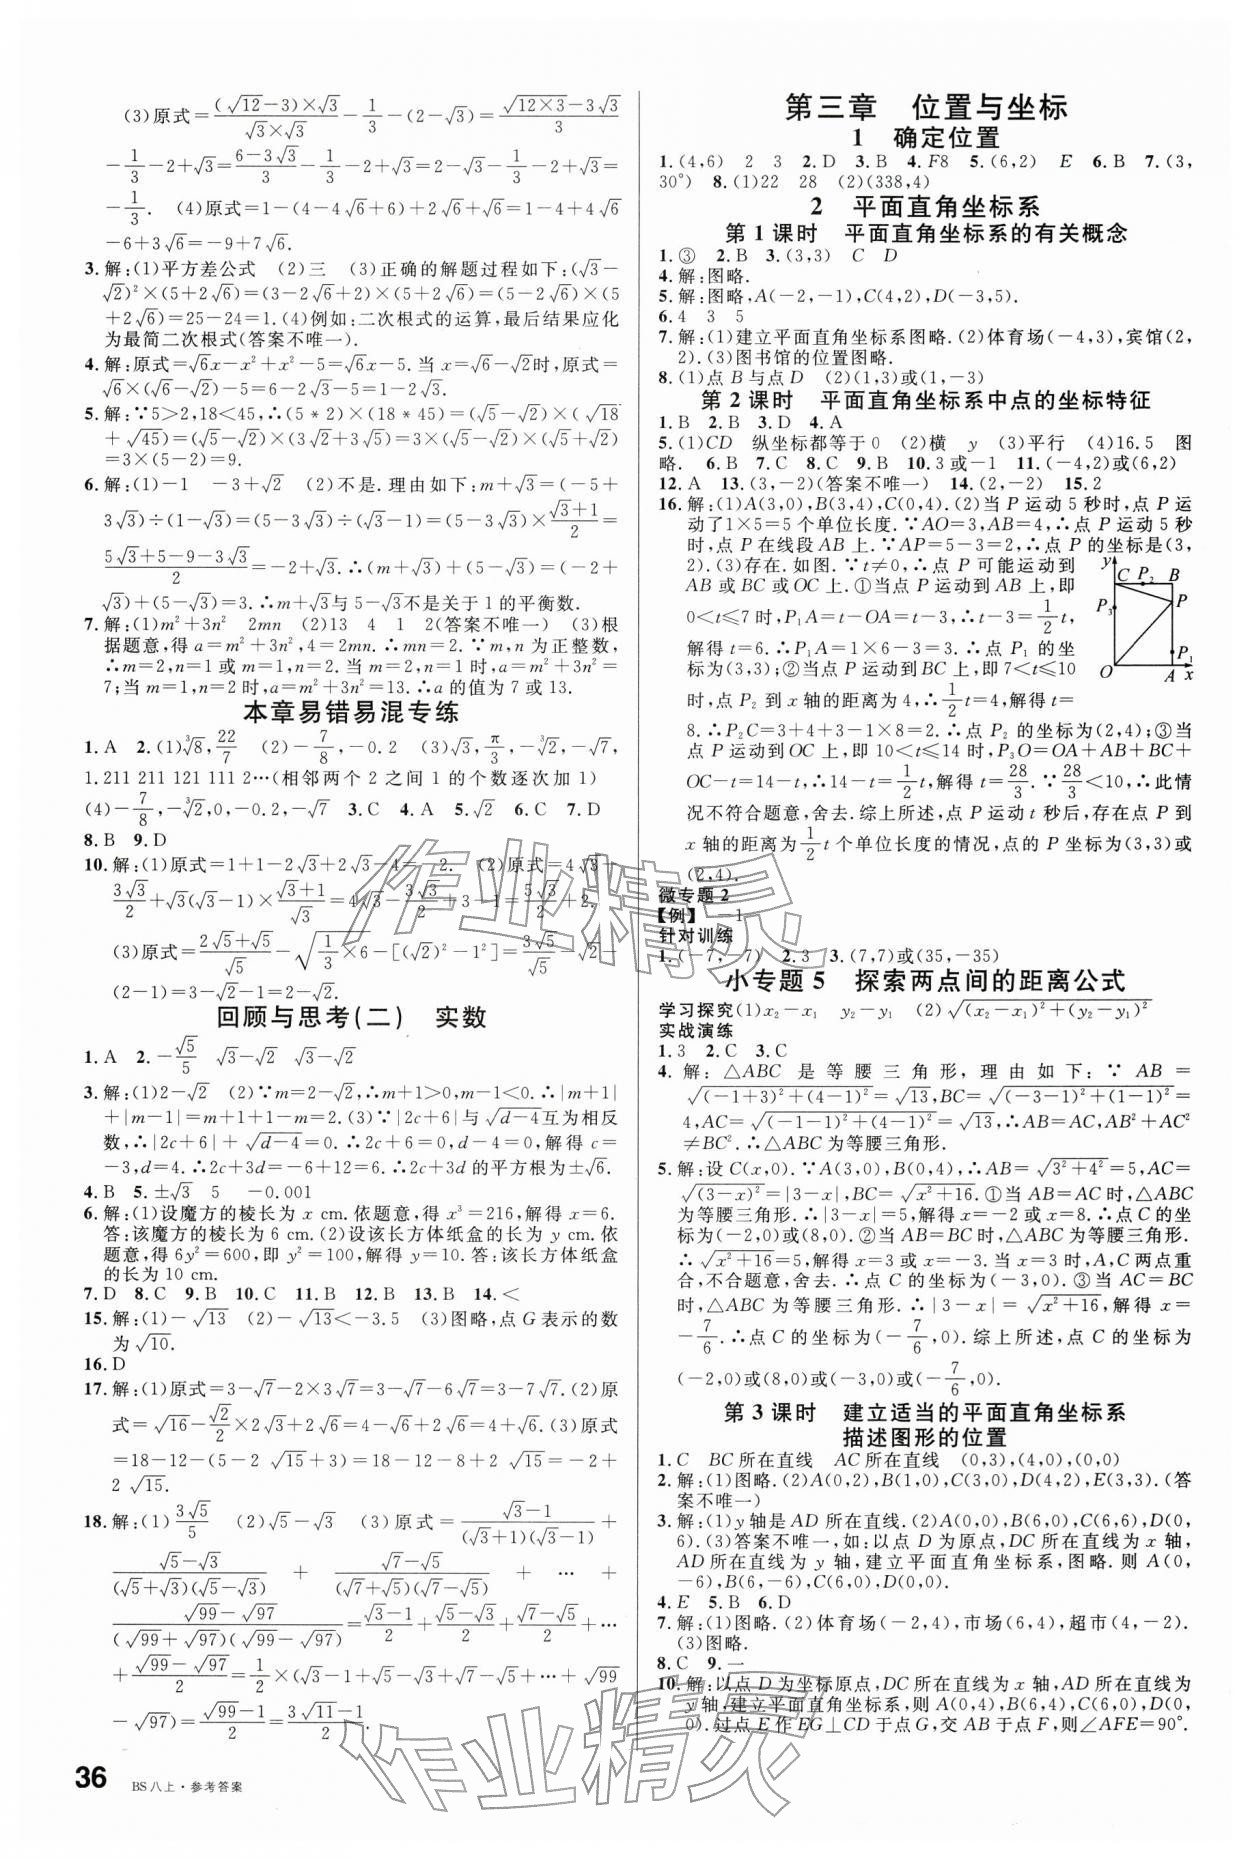 (3)原式=(√12-3)×√3/√3×√3-1/3-(2-√3)=√12×3-3√3/3
-1/3-2+√3=6-3√3/3-1/3-2+√3=2-√3-1/3-2+√3=
-1/3. (4)原式=1-(4-4√6+6)+2√6+√6=1-4+4√6
-6+3√6=-9+7√6.
3.解:(1)平方差公式 (2)三 (3)正确的解题过程如下:(√3-
√2)²×(5+2√6)=(3-2√6+2)×(5+2√6)=(5-2√6)×(5
+2√6)=25-24=1.(4)例如:二次根式的运算,最后结果应化
为最简二次根式(答案不唯一).
4.解:原式=√6x-x²+x²-5=√6x-5.当x=√6-√2时,原式=
√6×(√6-√2)-5=6-2√3-5=1-2√3.
5.解:∵5>2,18<45,∴(5*2)×(18*45)=(√5-√2)×(√18
+√45)=(√5-√2)×(3√2+3√5)=3×(√5-√2)×(√5+√2)
=3×(5-2)=9.
6.解:(1)-1 -3+√2 (2)不是.理由如下:m+√3=(-5+
3√3)÷(1-√3)=(5-3√3)÷(√3-1)=(5-3√3)×√3+1/2=
5√3+5-9-3√3/2=-2+√3.∴(m+√3)+(5-√3)=(-2+
√3)+(5-√3)=3.∴m+√3与5-√3不是关于1的平衡数.
7.解:(1)m²+3n² 2mn (2)13 4 1 2(答案不唯一) (3)根
据题意,得a=m²+3n²,4=2mn.∴mn=2.∵m,n为正整数,
∴m=2,n=1或m=1,n=2.当m=2,n=1时,a=m²+3n²=
7;当m=1,n=2时,a=m²+3n²=13.∴a的值为7或13.
本章易错易混专练
1.A 2.(1)³√8,22/7 (2)-7/8,-0.2 (3)√3,π/3,-³√2,-√7,
1.211 211 121 111 2…(相邻两个2之间1的个数逐次加1)
(4)-7/8,-³√2,0,-0.2,-√7 3.C 4.A 5.√2 6.C 7.D
8.B 9.D
10.解:(1)原式=1+1-2√3+2√3-4=-2. (2)原式=4√3-
3√3/2+√3(√3-1)×√3+1/√3=4√3-3√3/2+3-1=5√3/2+2.
(3)原式=2√5+√5/√5-√1/3×6-[(√2)²-1²]=3√5/√5-√2-
(2-1)=3-√2-1=2-√2.
回顾与思考(二) 实数
1.A 2.-√5/5 √3-√2 √3-√2
3.解:(1)2-√2 (2)∵m=2-√2,∴m+1>0,m-1<0.∴|m+1|
+|m-1|=m+1+1-m=2.(3)∵|2c+6|与√d-4互为相反
数,∴|2c+6|+√d-4=0.∴2c+6=0,d-4=0,解得c=
-3,d=4.∴2c+3d=-6+12=6.∴2c+3d的平方根为±√6.
4.B 5.±√3 5 -0.001
6.解:(1)设魔方的棱长为x cm.依题意,得x³=216,解得x=6.
答:该魔方的棱长为6 cm.(2)设该长方体纸盒的长为y cm.依
题意,得6y²=600,即y²=100,解得y=10.答:该长方体纸盒
的长为10 cm.
7.D 8.C 9.B 10.C 11.B 12.B 13.B 14.<
15.解:(1)-√13 (2)-√13<-3.5 (3)图略,点G表示的数
为√10.
16.D
17.解:(1)原式=3-√7-2×3√7=3-√7-6√7=3-7√7.(2)原
式=√16-√2/2×2√3+2√6=4-√6+2√6=4+√6.(3)原式
=18-12-(5-2√15+3)=18-12-8+2√15=-2+
2√15.
18.解:(1)3√5/5 (2)√5-√3 (3)原式=√3-1/(√3+1)(√3-1)+
√5-√3/(√5+√3)(√5-√3)+√7-√5/(√7+√5)(√7-√5)+…+
√99-√97/(√99+√97)(√99-√97)=√3-1/2+√5-√3/2+√7-√5/2+…
+√99-√97/2=1/2×(√3-1+√5-√3+√7-√5+…+√99
-√97)=√99-1/2=3√11-1/2.
36 BS八上·参考答案
第三章 位置与坐标
1 确定位置
1.(4,6) 2 3 2.D 3.B 4.F8 5.(6,2) E 6.B 7.(3,
30°) 8.(1)22 28 (2)(338,4)
2 平面直角坐标系
第1课时 平面直角坐标系的有关概念
1.③ 2.B 3.(3,3) C D
4.解:图略.
5.解:图略,A(-2,-1),C(4,2),D(-3,5).
6.4 3 5
7.解:(1)建立平面直角坐标系图略.(2)体育场(-4,3),宾馆(2,
2).(3)图书馆的位置图略.
8.(1)点B与点D (2)(1,3)或(1,-3)
第2课时 平面直角坐标系中点的坐标特征
1.B 2.B 3.D 4.A
5.(1)CD 纵坐标都等于0 (2)横 y (3)平行 (4)16.5 图
略. 6.B 7.C 8.C 9.B 10.3或-1 11.(-4,2)或(6,2)
12.A 13.(3,-2)(答案不唯一) 14.(2,-2) 15.2
16.解:(1)A(3,0),B(3,4),C(0,4).(2)当P运动5秒时,点P运
动了1×5=5个单位长度.∵AO=3,AB=4,∴点P运动5秒
时,点P在线段AB上.∵AP=5-3=2,∴点P的坐标是(3,
2).(3)存在.如图.∵t≠0,∴点P可能运动到
AB或BC或OC上.①当点P运动到AB上,即
0<t≤7时,P₁A=t-OA=t-3,∴t-3=1/2t,
解得t=6.∴P₁A=1×6-3=3.∴点P₁的坐
标为(3,3);②当点P运动到BC上,即7<t≤10
时,点P₂到x轴的距离为4,∴1/2t=4,解得t=
8.∴P₂C=3+4+3-1×8=2.∴点P₂的坐标为(2,4);③当
点P运动到OC上,即10<t≤14时,P₃O=OA+AB+BC+
OC-t=14-t,∴14-t=1/2t,解得t=28/3.∵28/3<10,∴此情
况不符合题意,舍去.综上所述,点P运动t秒后,存在点P到
x轴的距离为1/2t个单位长度的情况,点的P坐标为(3,3)或
(2,4).
y
C P₂ B
P₃ P
P₁
O A x
微专题2
【例】 -1
针对训练
1.(-7,-7) 2.3 3.(7,7)或(35,-35)
小专题5 探索两点间的距离公式
学习探究(1)x₂-x₁ y₂-y₁ (2)√(x₂-x₁)²+(y₂-y₁)²
实战演练
1.3 2.C 3.C
4.解:△ABC是等腰三角形,理由如下:∵AB=
√(-1+3)²+(4-1)²=√13,BC=√(-3-1)²+(1-1)²=
4,AC=√(-1-1)²+(4-1)²=√13,∴AB=AC,AB²+AC²
≠BC².∴△ABC为等腰三角形.
5.解:设C(x,0).∵A(3,0),B(0,4),∴AB=√3²+4²=5,AC=
√(3-x)²=|3-x|,BC=√x²+16.①当AB=AC时,△ABC
为等腰三角形.∴|3-x|=5,解得x=-2或x=8.∴点C的坐
标为(-2,0)或(8,0).②当AB=BC时,△ABC为等腰三角形.
∴√x²+16=5,解得x=3或x=-3.当x=3时,A,C两点重
合,不合题意,舍去.∴点C的坐标为(-3,0).③当AC=BC
时,△ABC为等腰三角形.∴|3-x|=√x²+16,解得x=
-7/6.∴点C的坐标为(-7/6,0).综上所述,点C的坐标为
(-2,0)或(8,0)或(-3,0)或(-7/6,0).
第3课时 建立适当的平面直角坐标系
描述图形的位置
1.C BC所在直线 AC所在直线 (0,3),(4,0),(0,0)
2.解:(1)图略.(2)A(0,2),B(1,0),C(3,0),D(4,2),E(3,3).(答
案不唯一)
3.解:(1)y轴是AD所在直线.(2)A(0,0),B(6,0),C(6,6),D(0,
6).(3)答案不唯一,如:以点D为原点,DC所在直线为x轴,
AD所在直线为y轴,建立平面直角坐标系,图略.则A(0,
-6),B(6,-6),C(6,0),D(0,0).
4.E 5.B 6.D
7.解:(1)图略.(2)体育场(-2,4),市场(6,4),超市(4,-2).
(3)图略.
8.C 9.一
10.解:以点D为坐标原点,DC所在直线为x轴,AD所在直线为
y轴,建立平面直角坐标系,则A(0,4),B(6,4),C(6,0),D(0,
0).过点E作EG⊥CD于点G,交AB于点F,则∠AFE=90°.
作业精灵
作业精灵